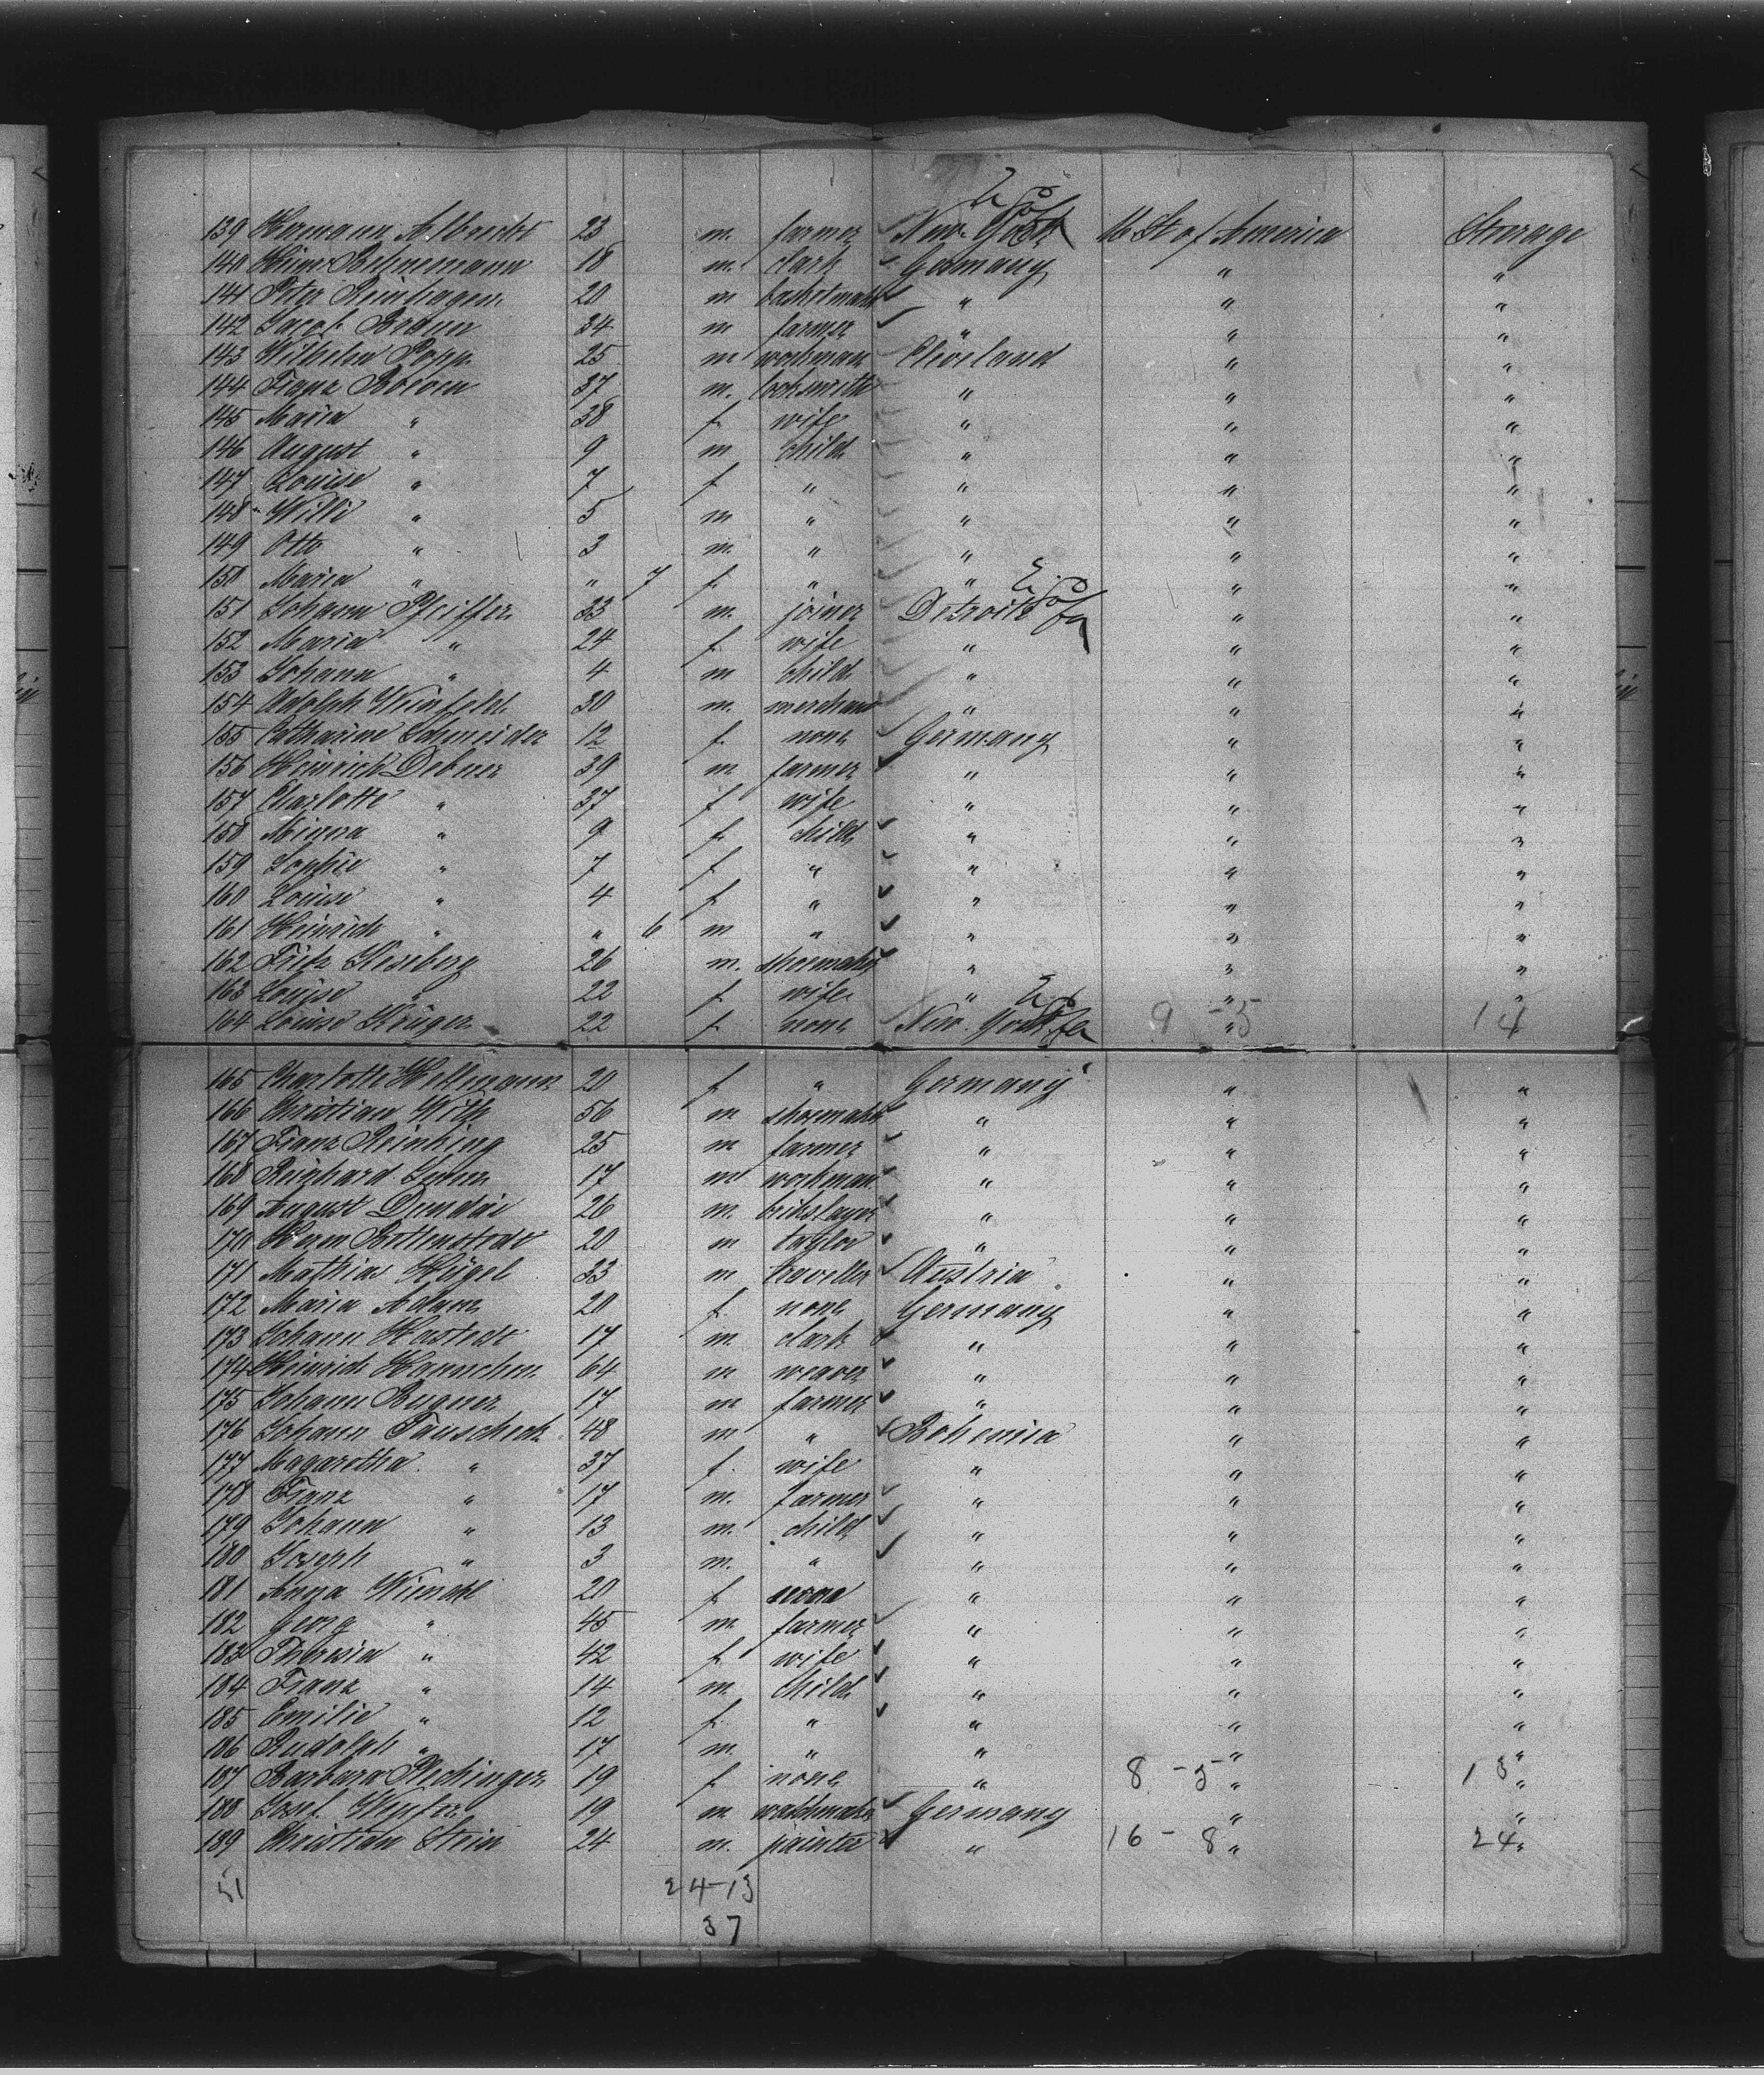 139 Hermann Albrecht 23 m. farmer New-York U St of America Sterage
140 Heinr. Behnemann 18 m. clark Germany " "
141 Peter Reinhagen 20 m basketmaker " " "
142 Jacob Braun 34 m farmer " " "
143 Wilhelm Popp 25 m workman Cleveland " "
144 Franz Boewe 37 m. locksmith " " "
145 Maria " 38 f. wife " " "
146 August " 9 m child " " "
147 Louise " 7 f " " " "
148 Willi " 5 m " " " "
149 Otto " 3 m. " " " "
150 Maria " " 7 f. " " " "
151 Johann Pfeiffer 33 m. joiner Detroit " "
152 Maria " 24 f. wife " " "
153 Johann " 4 m child " " "
154 Adolph Weinfeld 30 m. merchant " " "
155 Catharine Schneider 12 f. none Germany " "
156 Heinrich Debner 39 m farmer " " "
157 Charlotte " 37 f wife " " "
158 Minna " 9 f. child " " "
159 Sophie " 7 f " " " "
160 Louise " 4 f " " " "
161 Heinrich " " 6 m " " " "
162 Fritz Keseberg 26 m. shoemaker " " "
163 Louise " 22 f. wife " " "
164 Louise Krüger 22 f. none New-York 9 - 5 " 14
165 Charlotte Hellmann 20 f " Germany " "
166 Christian With 56 m shoemaker " " "
167 Franz Reinking 25 m farmer " " "
168 Reinhard 17 m workman " " "
169 August Dundar 26 m. brikslayer " " "
170 Herm Bottenstedt 20 m taylor " " "
171 Mathias Hügel 33 m traveller Austria " "
172 Maria Adam 20 f. none Germany " "
173 Johann Hastedt 17 m. clark " " "
174 Heinrich Hannchen 64 m weaver " " "
175 Johann Bugner 17 m farmer " " "
176 Johann Tauscheck 48 m " Bohemia " "
177 Magaretha " 37 f. wife " " "
178 Franz " 17 m. farmer " " "
179 Johann " 13 m. child " " "
180 Joseph " 3 m. " " " "
181 Anna Wiendl 20 f. none " " "
182 Georg " 45 m. farmer " " "
183 Theresia " 42 f. wife " " "
184 Franz " 14 m. child " " "
185 Emilie " 12 f. " " " "
186 Rudolph " 17 m. " " " "
187 Barbara Plechinger 19 f. none " 8 - 5 " 13 "
188 Josef 19 m watchmaker Germany " "
189 Christian Stein 24 m. painter " 16 - 8 " 24 "
51 24-13
37